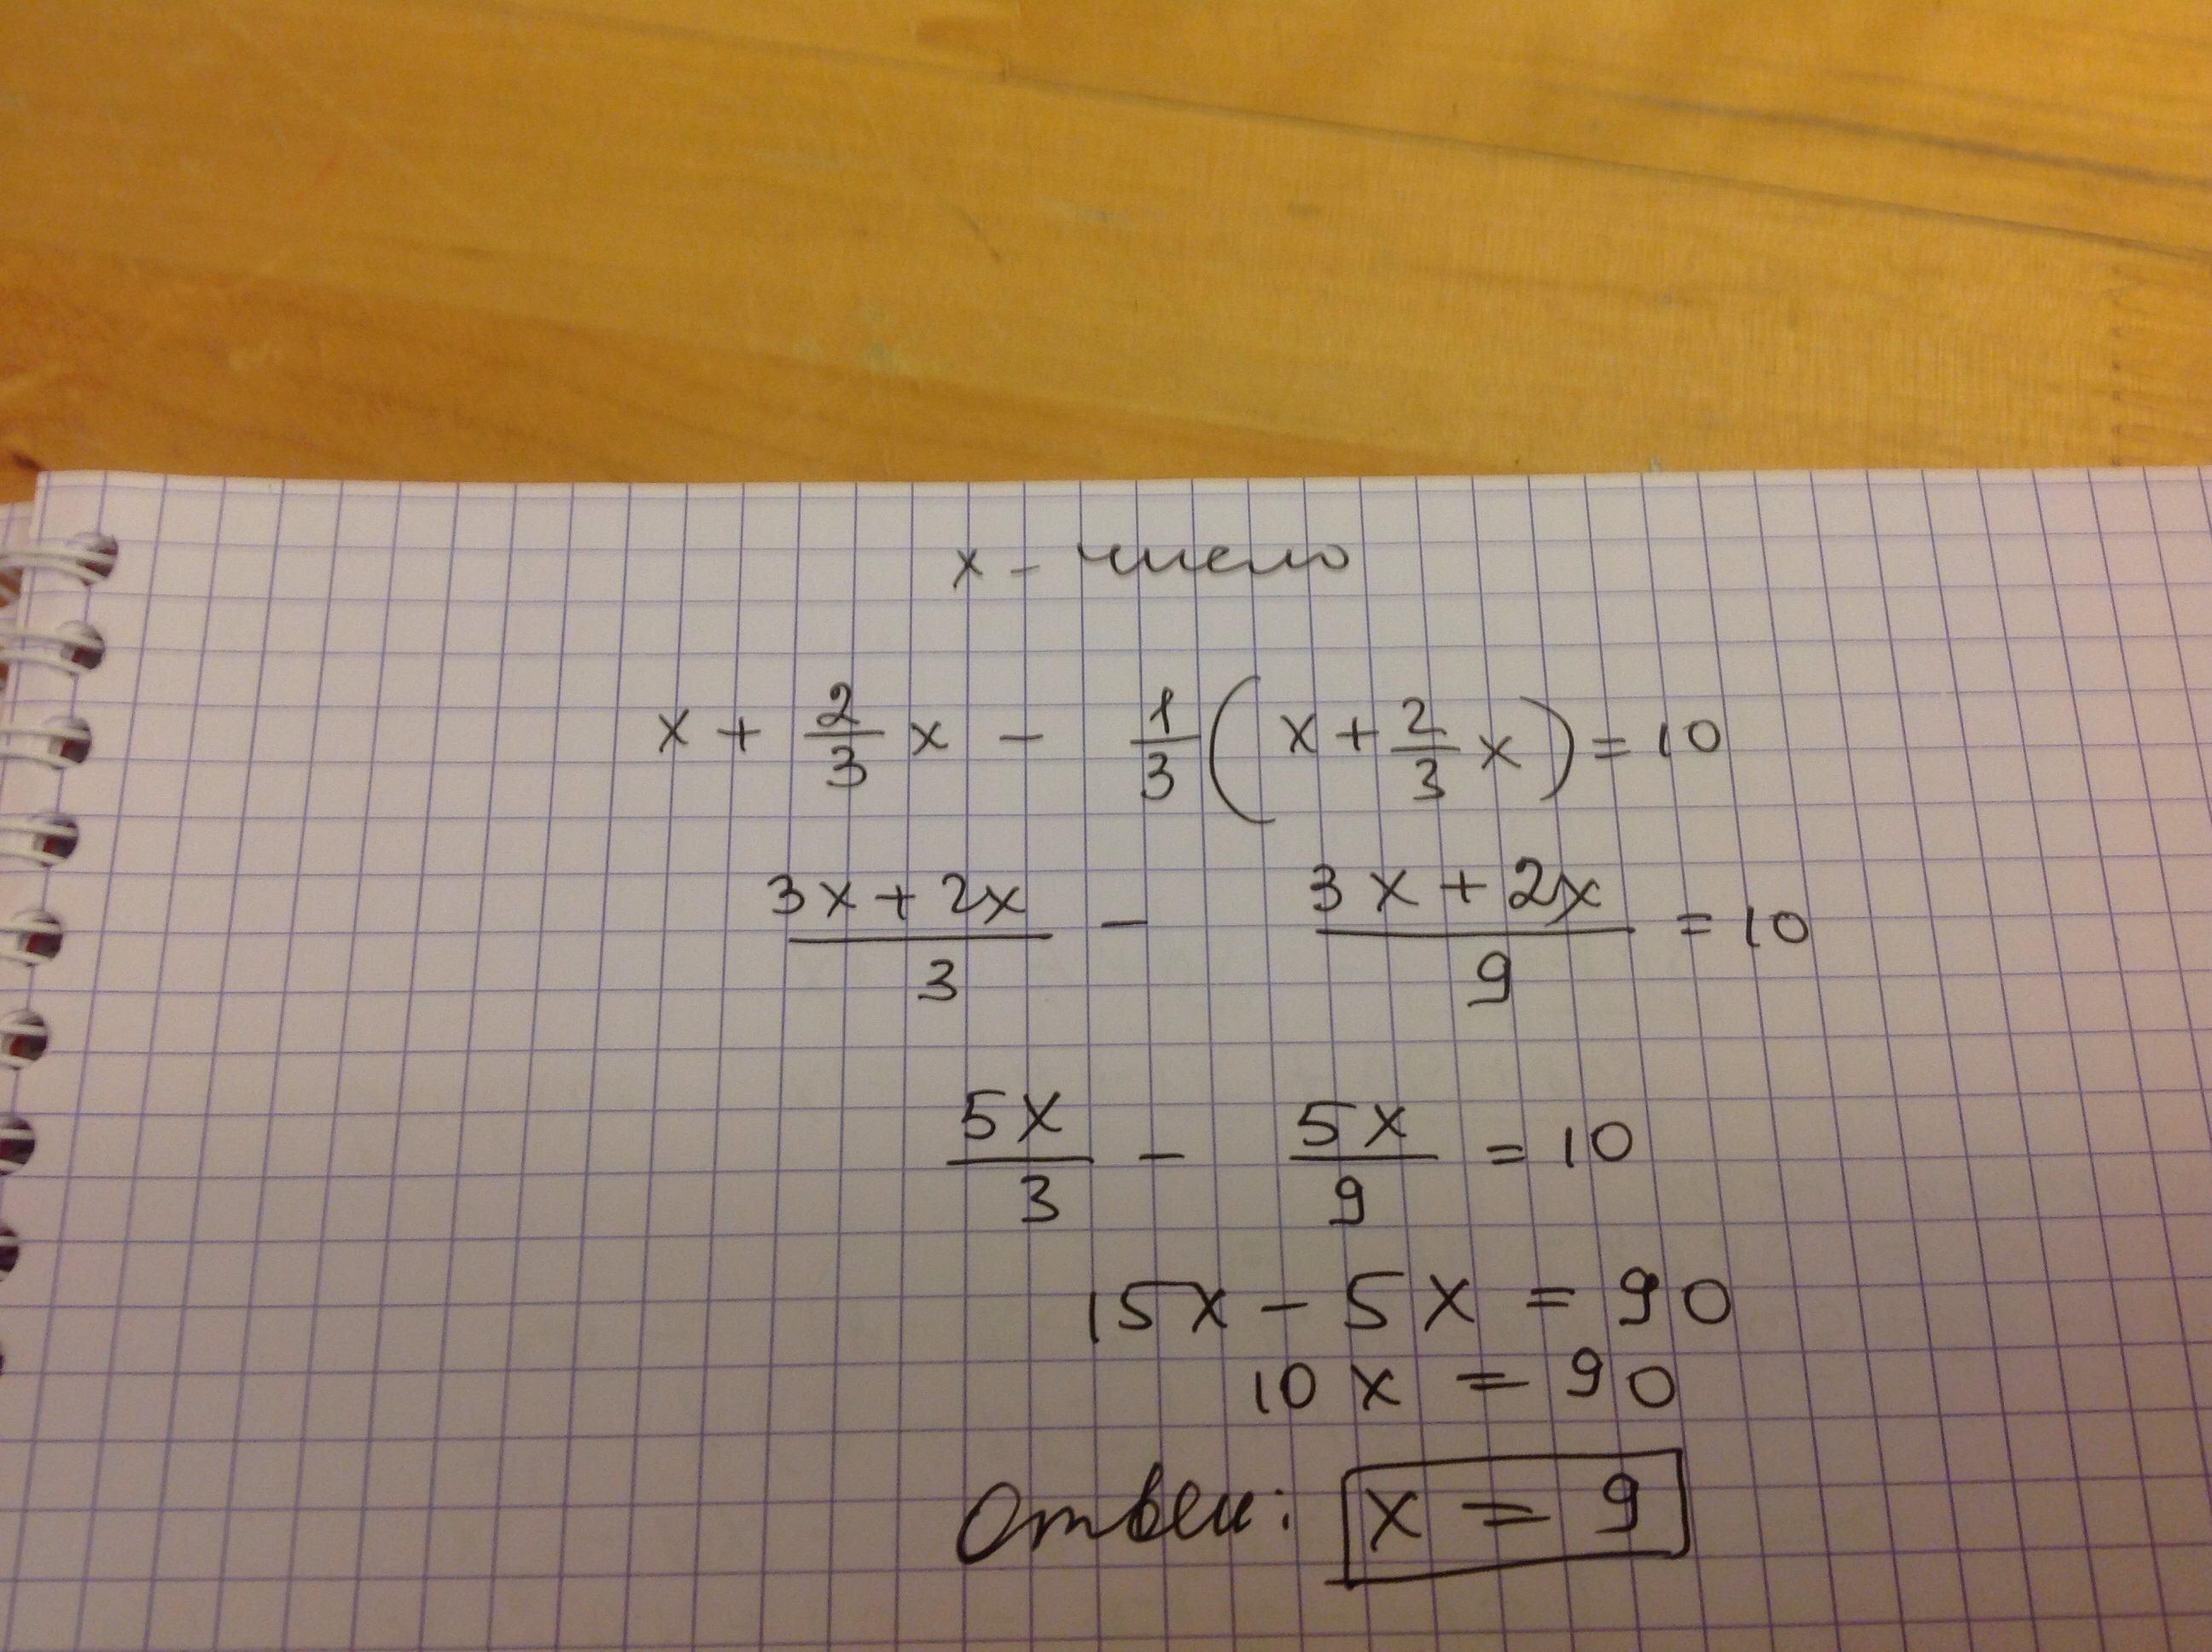 x - число
x + 2/3 x - 1/3 ( x + 2/3 x ) = 10
3x + 2x / 3 - 3x + 2x / 9 = 10
5x / 3 - 5x / 9 = 10
15x - 5x = 90
10x = 90
Ответ: x = 9